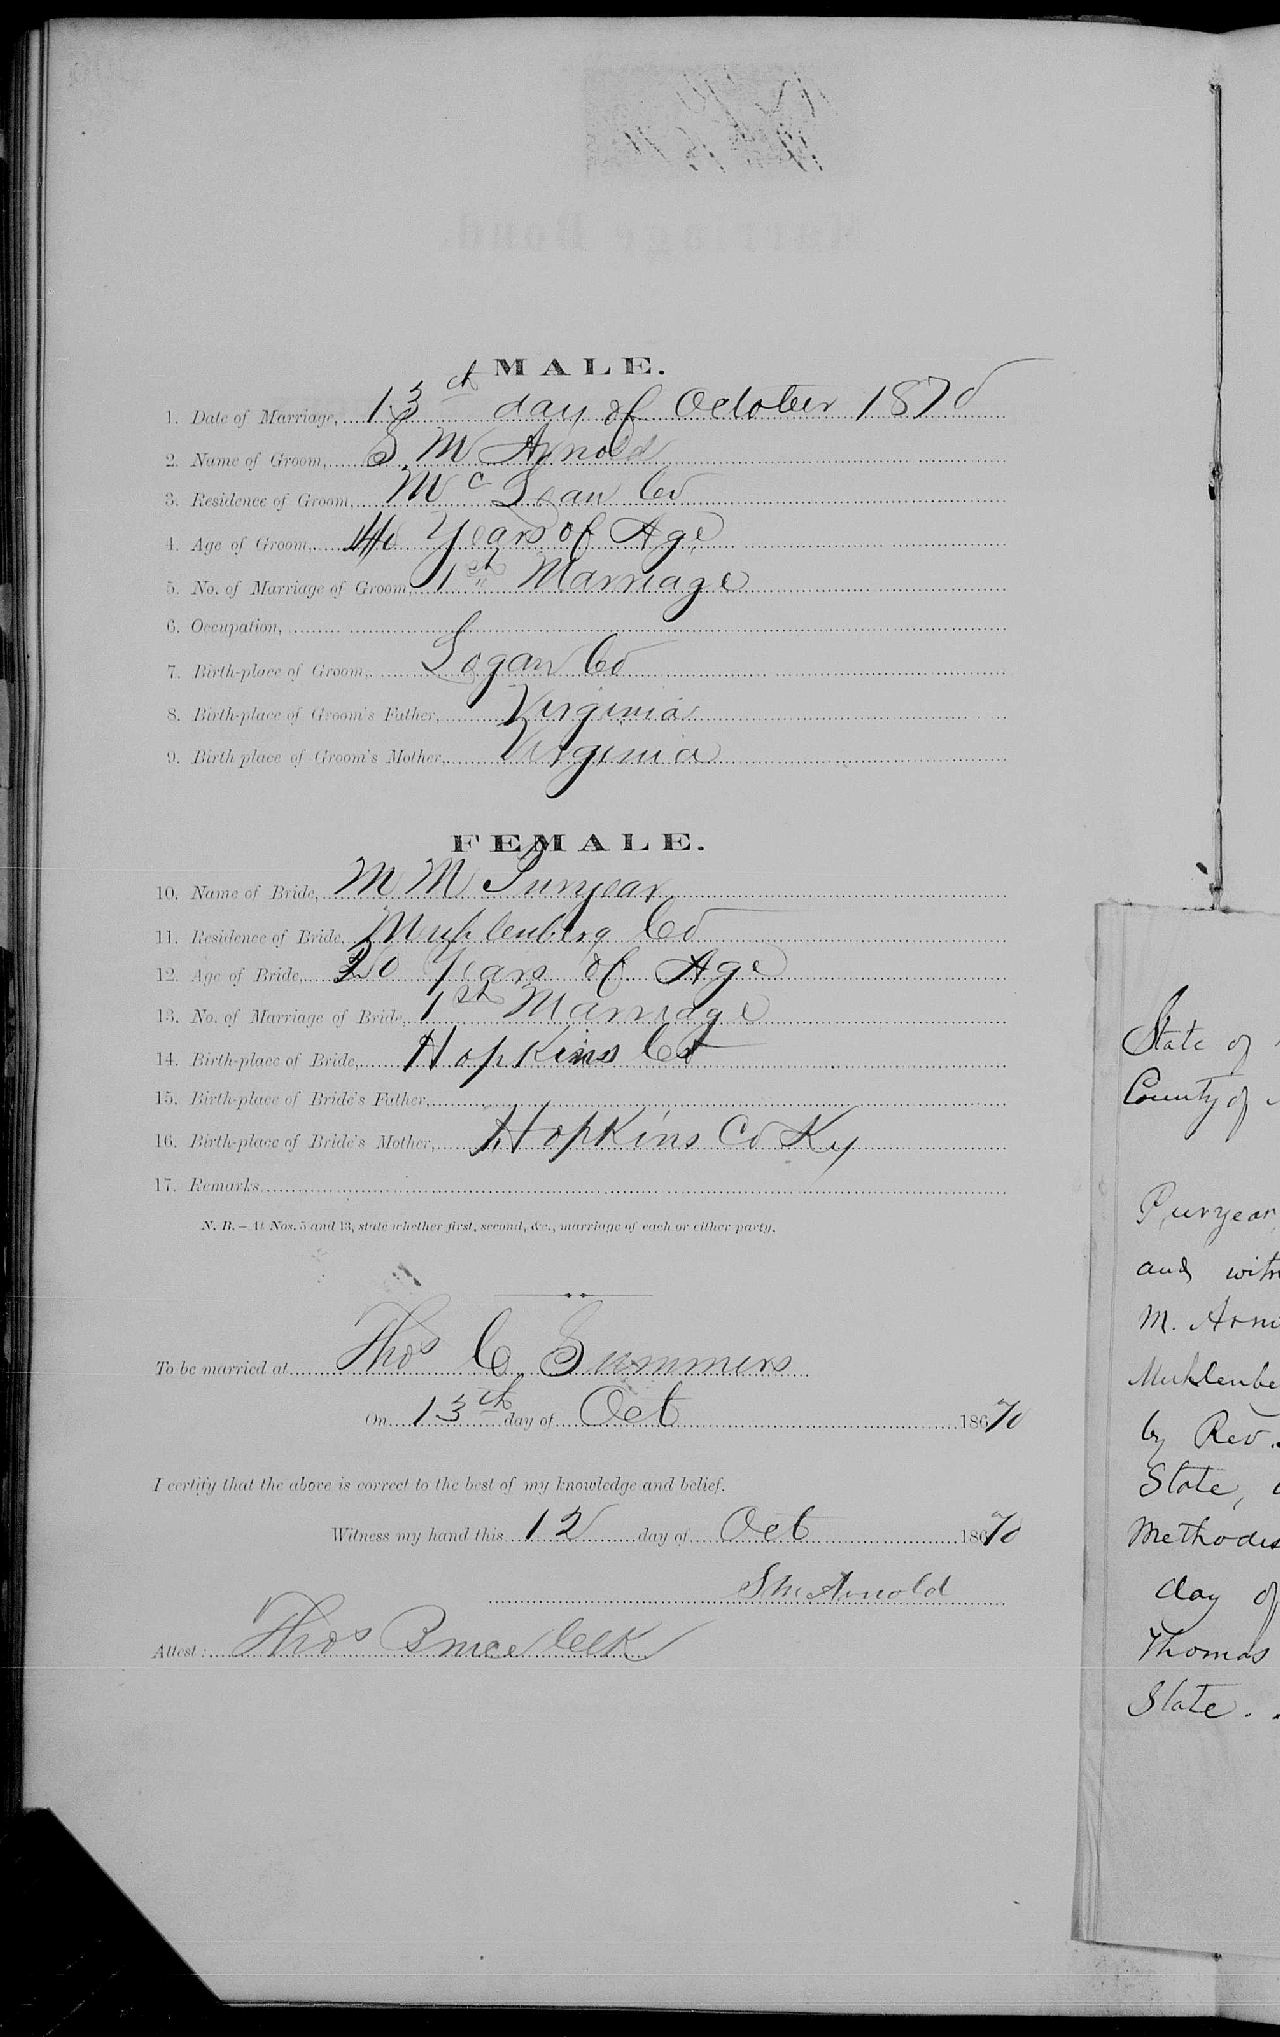 MALE.
1. Date of Marriage, 13th day of October 1870
2. Name of Groom, S. M Arnold
3. Residence of Groom, McLean Co
4. Age of Groom, Years of Age
5. No. of Marriage of Groom, 1st Marriage
6. Occupation,
7. Birth-place of Groom, Logan Co
8. Birth-place of Groom's Father, Virginia
9. Birth-place of Groom's Mother, Virginia
FEMALE.
10. Name of Bride, M M Puryear
11. Residence of Bride, Muhlenberg Co
12. Age of Bride, 20 Years of Age
13. No. of Marriage of Bride, 1st Marriage
14. Birth-place of Bride, Hopkins Co
15. Birth-place of Bride's Father,
16. Birth-place of Bride's Mother, Hopkins Co Ky
17. Remarks
N. B.—At Nos. 5 and 13, state whether first, second, &c., marriage of each or either party.
To be married at Thos C. Summers
On 13th day of Oct 1870
I certify that the above is correct to the best of my knowledge and belief.
Witness my hand this 12 day of Oct 1870
S M Arnold
Attest: Thos Bruce Clk
State of
County of
Puryear,
and
M.
by Rev.
State,
day of
Thomas
State.